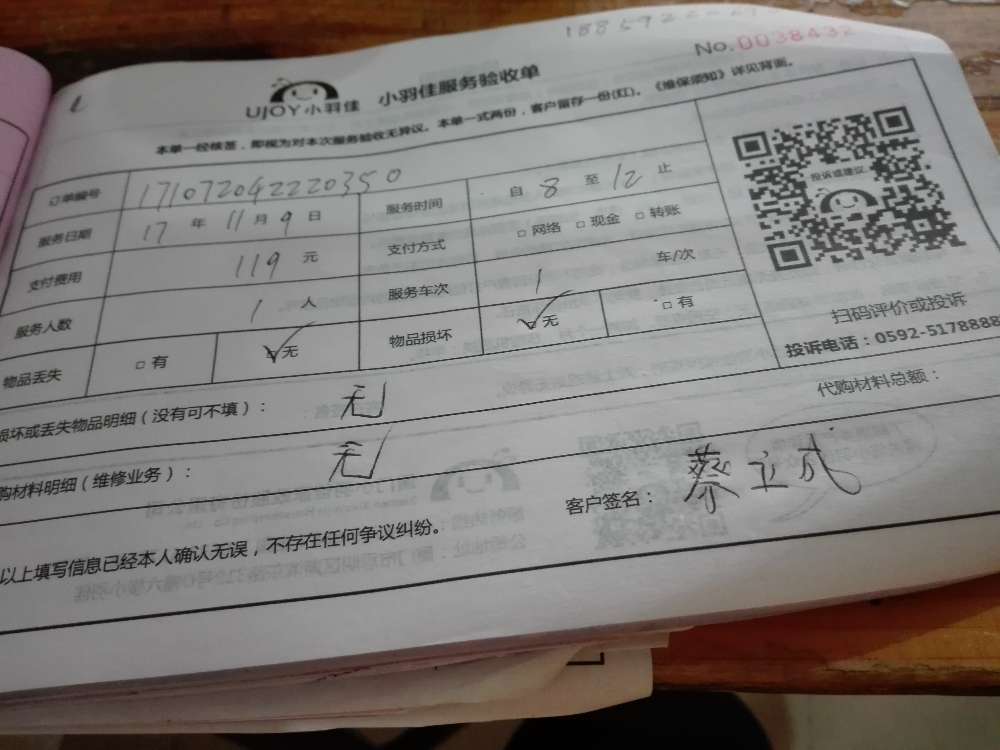 No.0038432
UJOY小羽佳 小羽佳服务验收单
本单一经核签,即视为对本次服务验收无异议。本单一式两份,客户留存一份(红)。《维保须知》详见背面。
订单编号 171072042220350
服务日期 17年11月9日 服务时间 自8至12止
支付费用 119元 支付方式 □网络 □现金 □转账
服务人数 1人 服务车次 1 车/次
物品丢失 □有 ☑无 物品损坏 ☑无 □有
投诉或建议
扫码评价或投诉
投诉电话:0592-5178888
损坏或丢失物品明细(没有可不填): 无
代购材料总额:
购材料明细(维修业务): 无
以上填写信息已经本人确认无误,不存在任何争议纠纷。 客户签名: 蔡立成